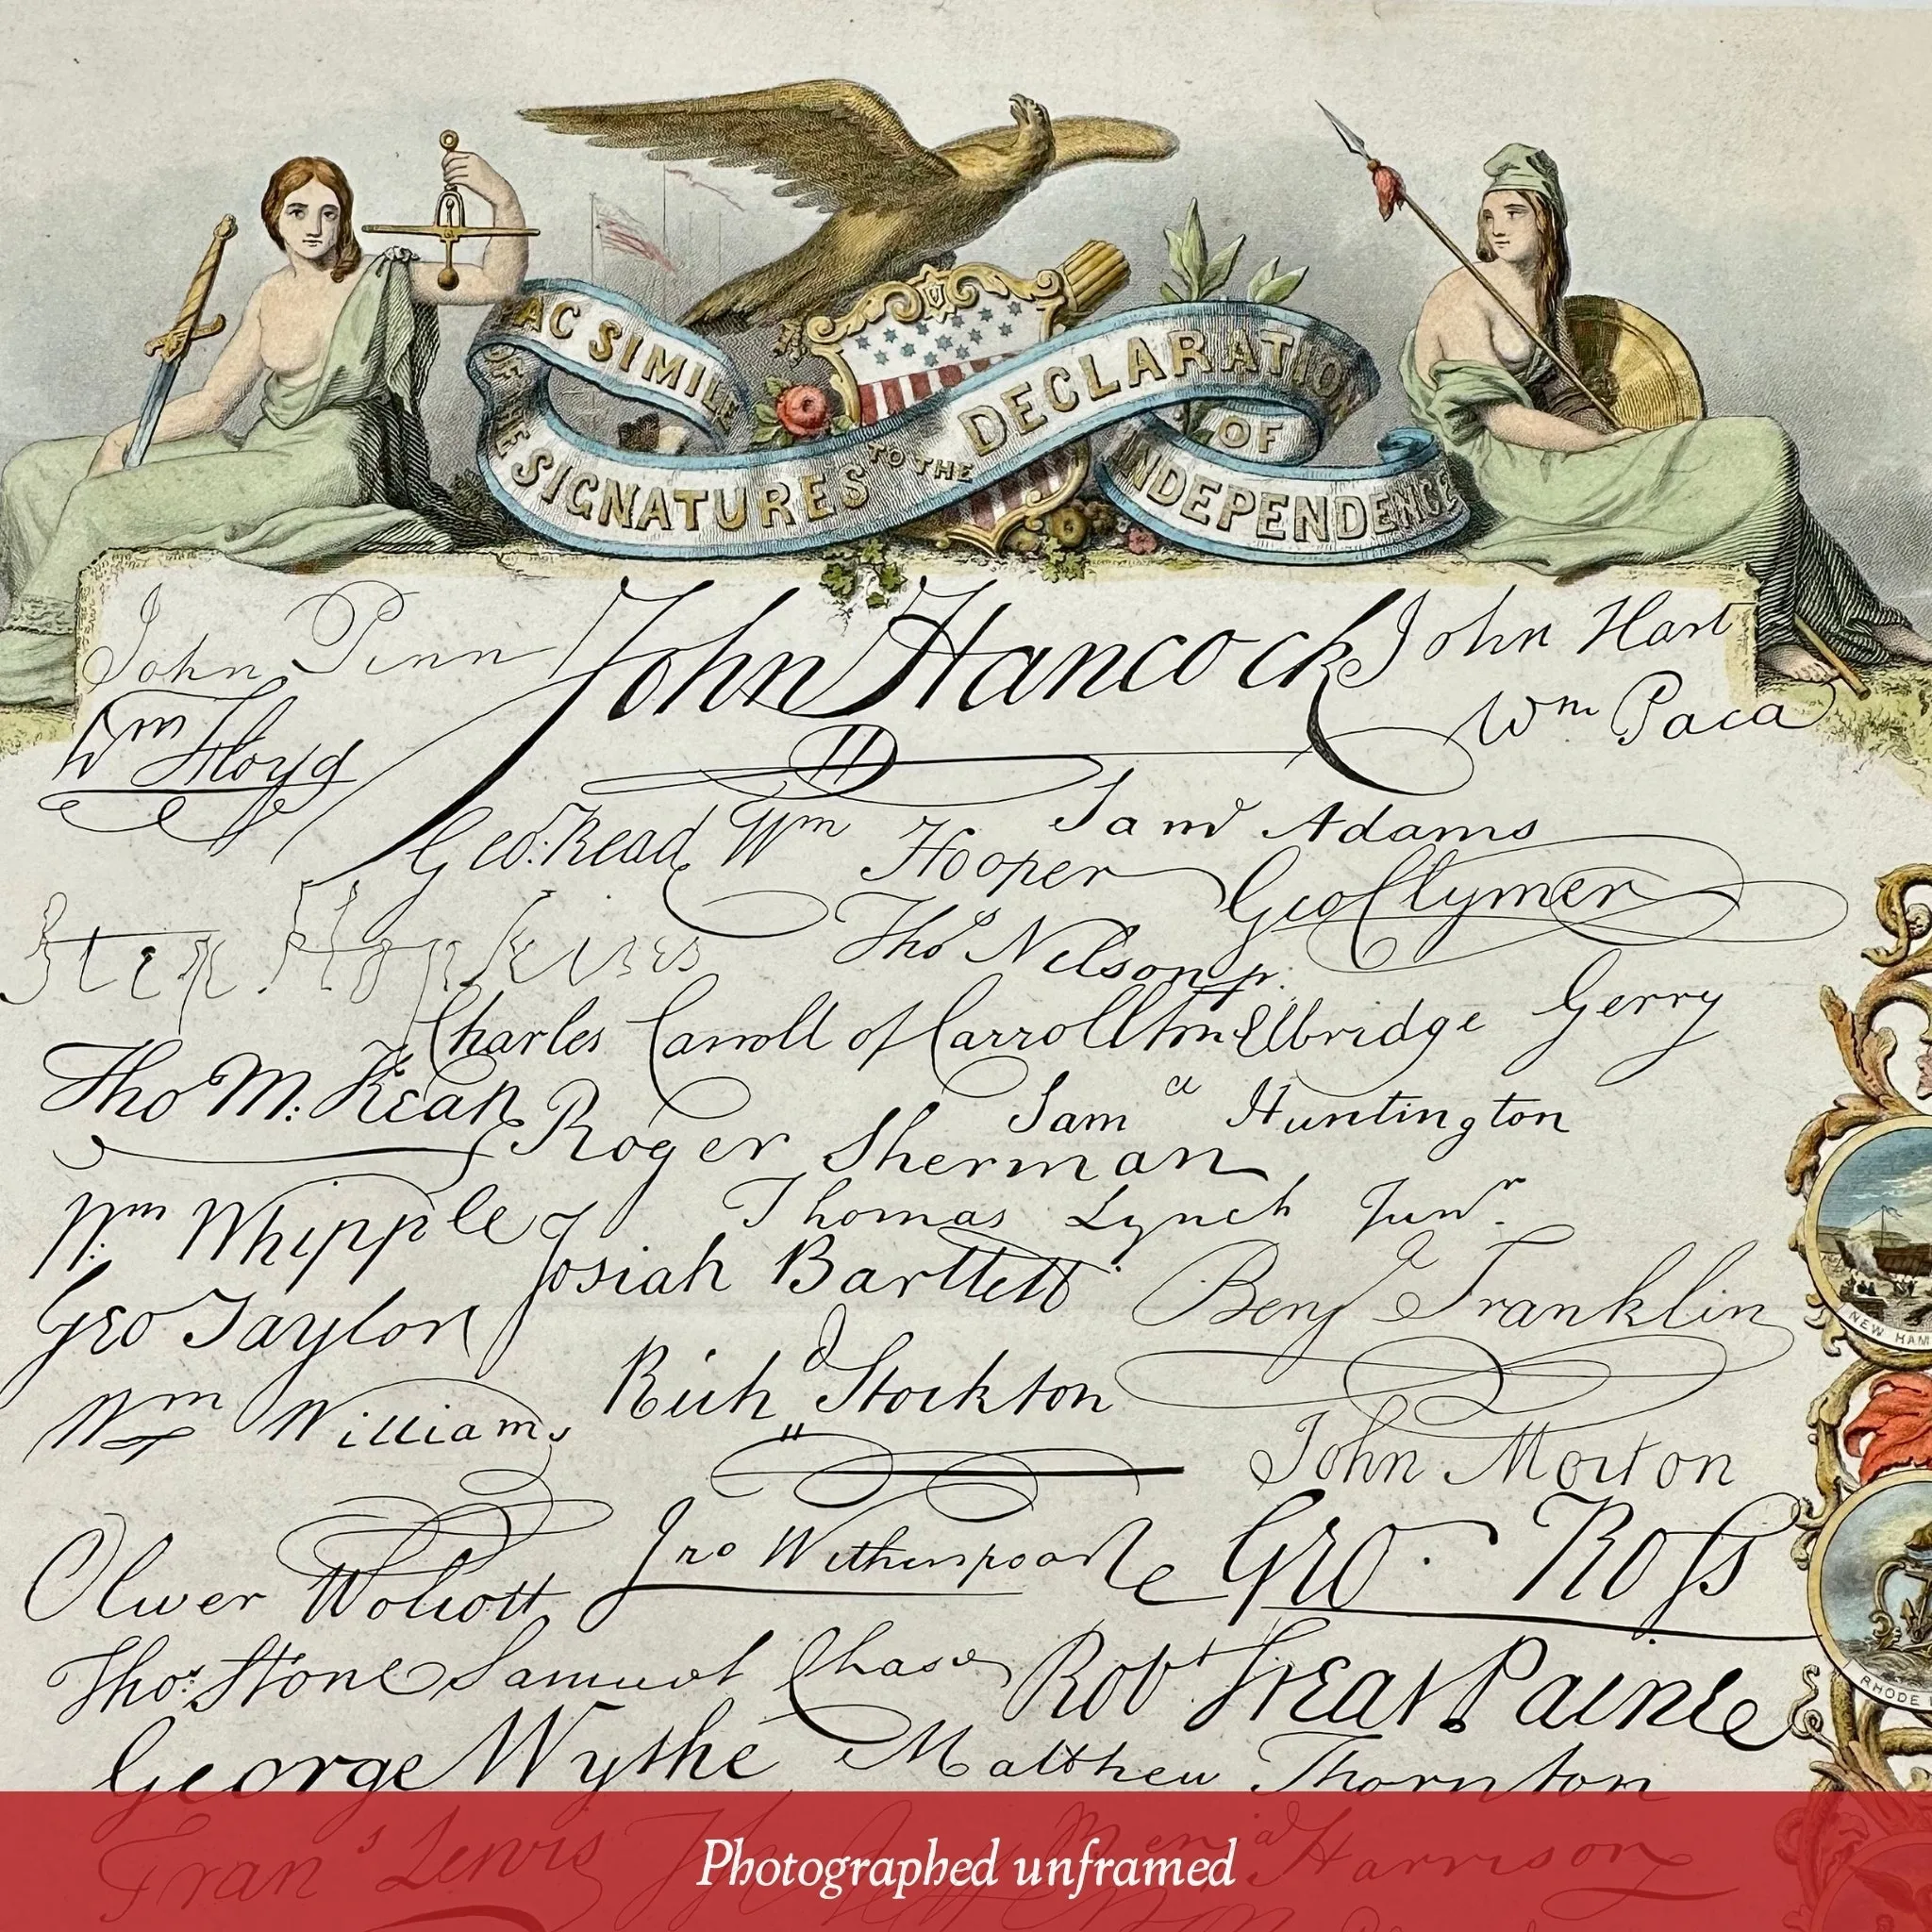 FAC SIMILE
OF THE SIGNATURES TO THE DECLARATION
OF
INDEPENDENCE
John Penn John Hancock John Hart
Wm Floyd Wm Paca
Geo. Read Wm Hooper Saml Adams
Step Hopkins Geo Clymer
Thos Nelson jr.
Charles Carroll of Carrollton Elbridge Gerry
Tho M:Kean Saml Huntington
Roger Sherman
Wm Whipple Thomas Lynch Junr.
Josiah Bartlett Benj Franklin
Geo Taylor
Richd Stockton
Wm Williams
John Morton
Oliver Wolcott Jno Witherspoon Geo. Ross
Thos. Stone Samuel Chase Robt Treat Paine
George Wythe Matthew Thornton
Frans Lewis Th Jefferson Benja Harrison
NEW HAM
RHODE
Photographed unframed